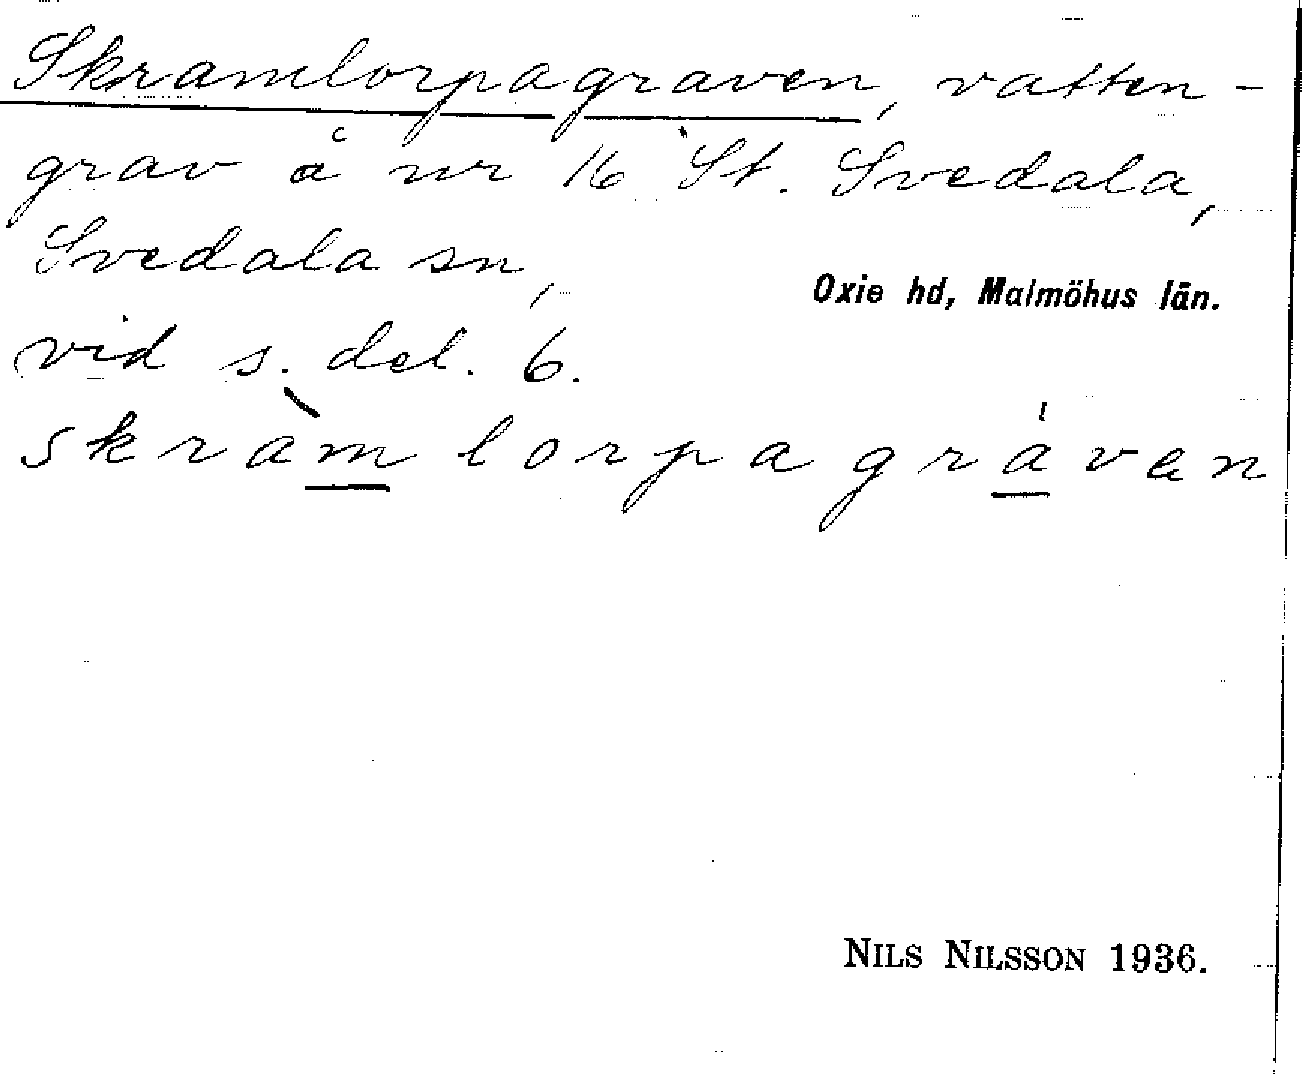 Skramlorpagraven, vatten-
grav å nr 16 St. Svedala,
Svedala sn,
Oxie hd, Malmöhus län.
vid s. del. 6.
skràmlorpagráven
NILS NILSSON 1936.